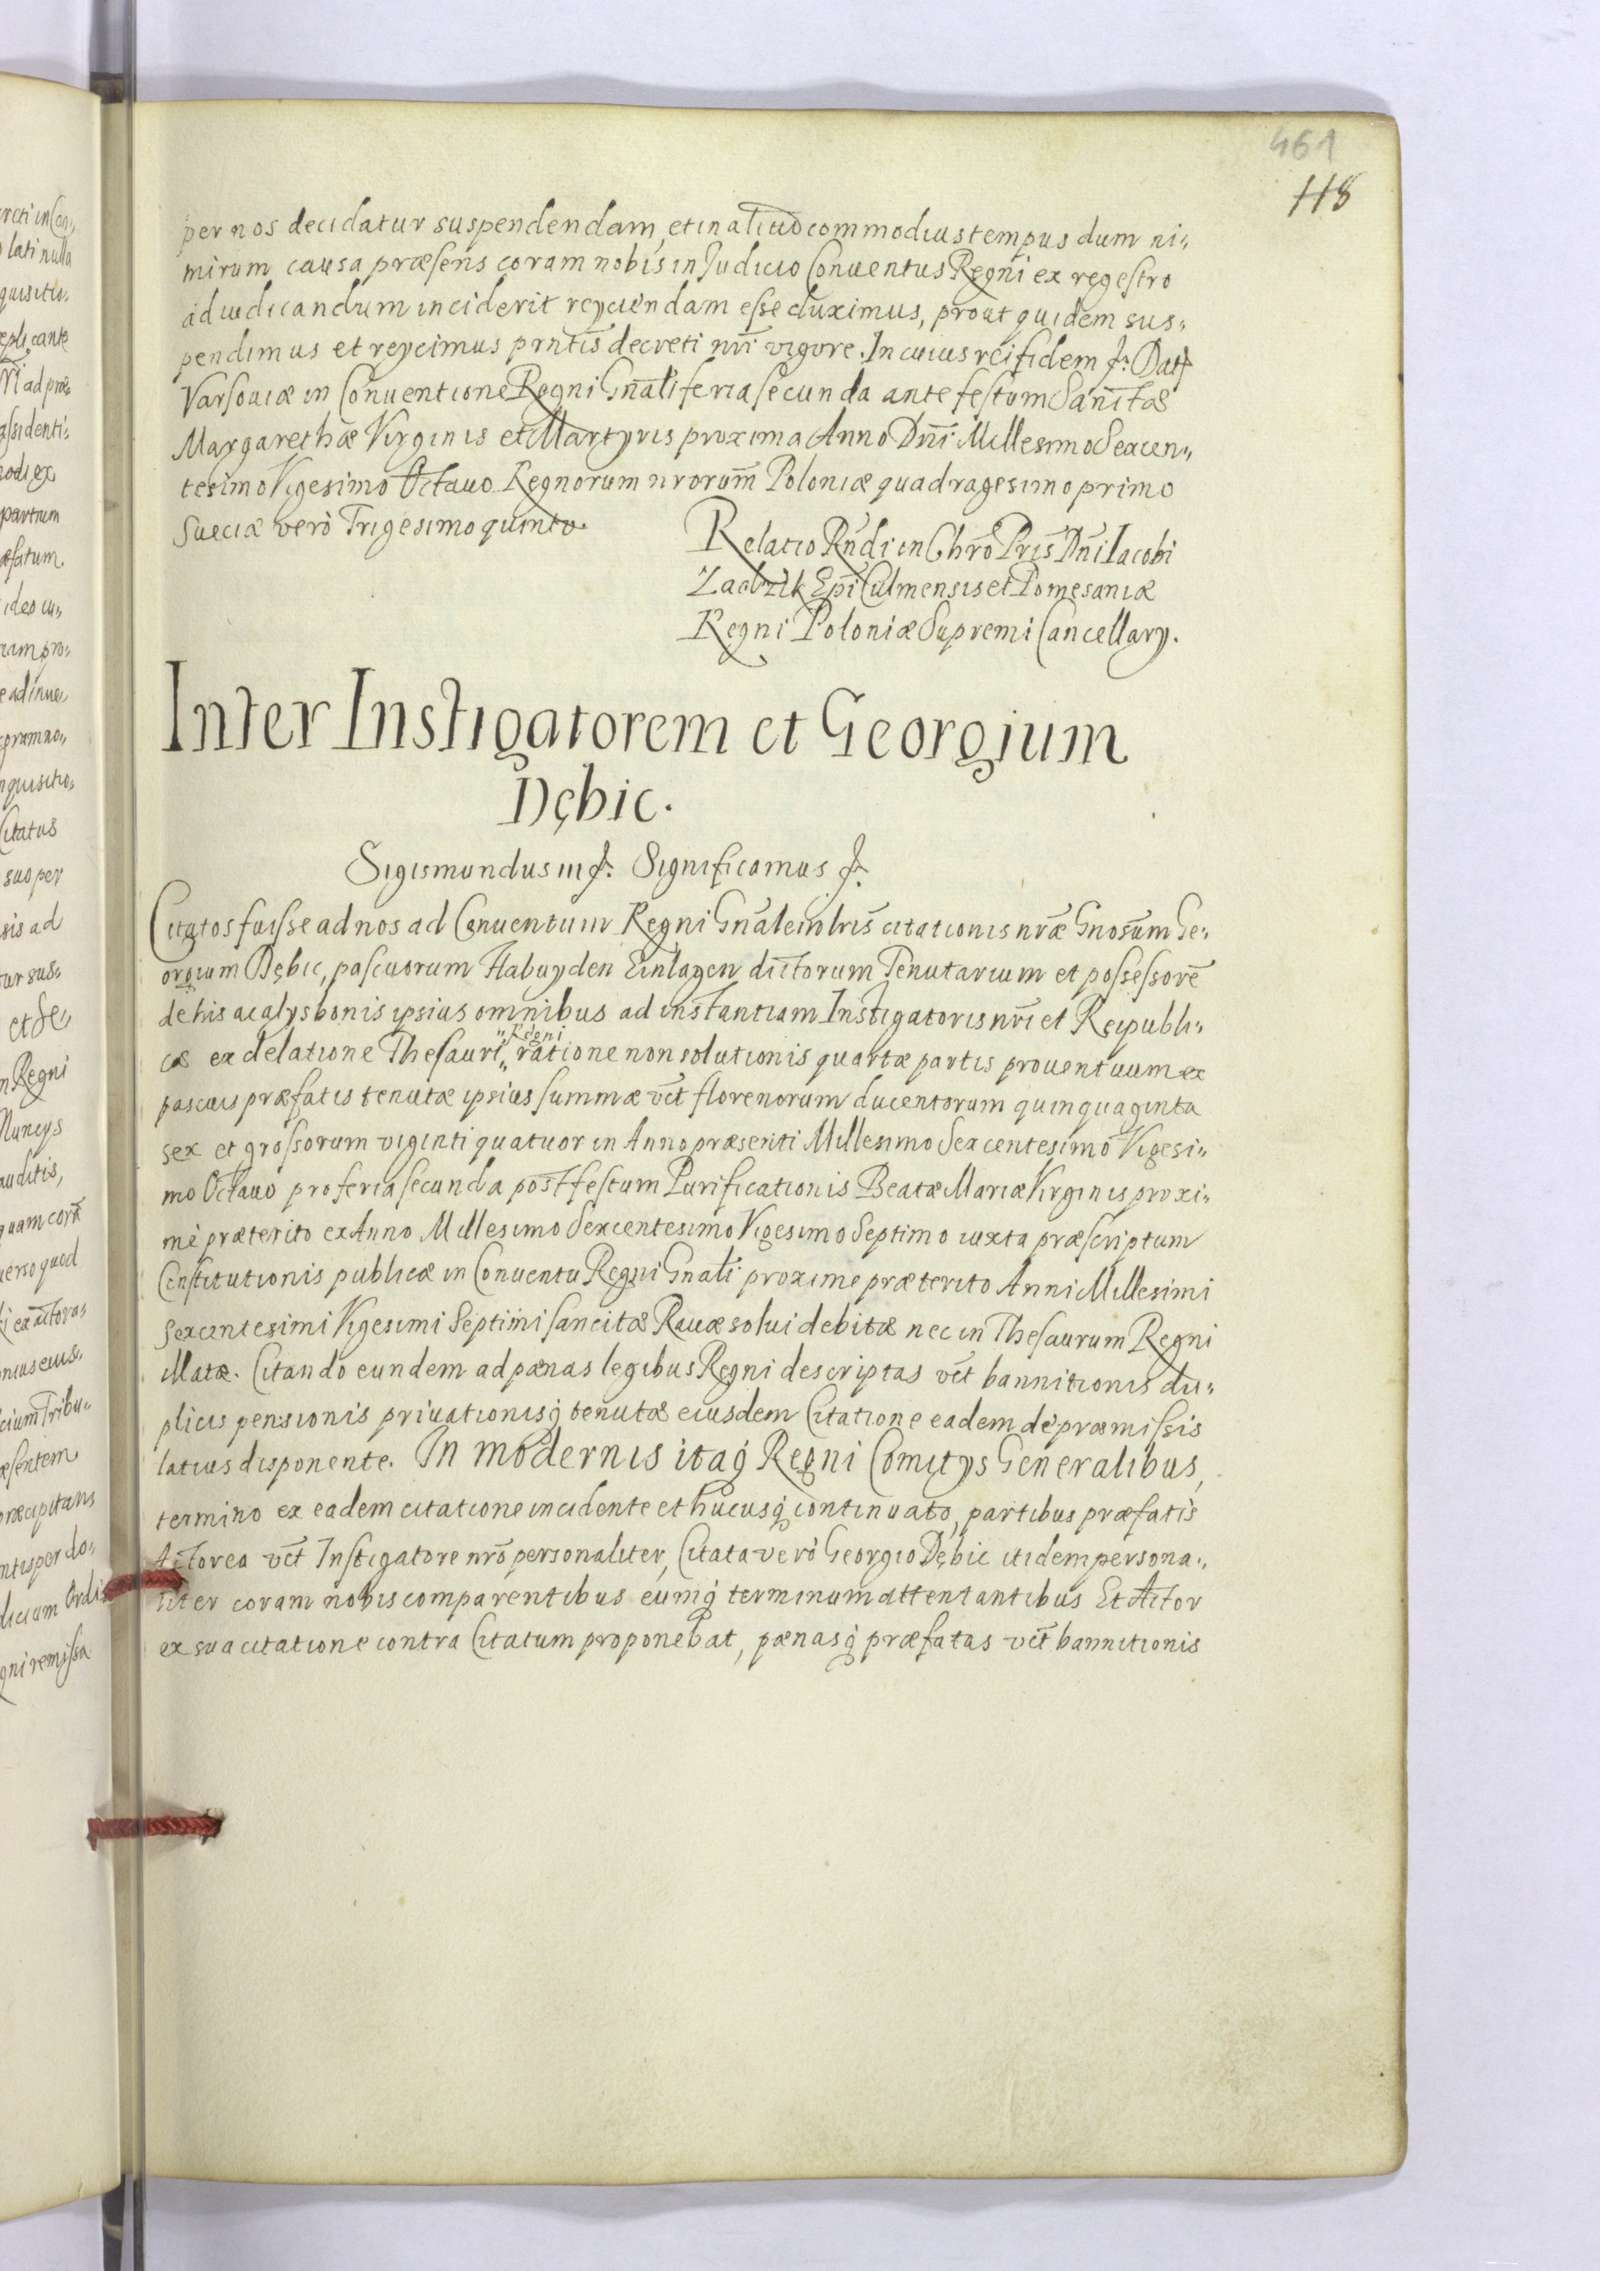 461
118
per nos decidatur suspendendam, et in aliud commodius tempus dum ni„
mirum causa præsens coram nobis in Judicio Conuentus Regni ex regestro
ad iudicandum inciderit reyciendam esse duximus, prout quidem sus„
pendimus et reycimus prntis decreti nri vigore. In cuius rei fidem &. Datt
Varsouiæ in Conuentione Regni Gnali feria secunda ante festum Sanctæ
Margarethæ Virginis et Martyris proxima Anno Dni Millesimo Sexcen„
tesimo Vigesimo Octauo Regnorum nrorum Poloniæ quadragesimo primo
Sueciæ verò Trigesimo quinto.
Relatio Rndi in Chro Pris Dni Iacobi
Zadzik Epi Culmensis et Pomesaniæ
Regni Poloniæ Supremi Cancellary.
Inter Instigatorem et Georgium
Dębic.
Sigismundus III &. Significamus &.
Citatos fuisse ad nos ad Conuentum Regni Gnalem lris citationis nræ Gnosum Ge„
orgium Dębic, pascuorum Habuyden Einlagen dictorum Tenutarium et possessorē
de his ac alys bonis ipsius omnibus ad instantiam Instigatoris nri et Reipubli„
cæ ex delatione Thesauri „Regni„ ratione non solutionis quartæ partis prouentuum ex
pascuis præfatis tenutæ ipsius summæ vct florenorum ducentorum quinquaginta
sex et grossorum viginti quatuor in Anno præsenti Millesimo Sexcentesimo Vigesi„
mo Octauo pro feria secunda post festum Purificationis Beatæ Mariæ Virginis proxi„
mè præterito ex Anno Millesimo Sexcentesimo Vigesimo Septimo iuxta præscriptum
Constitutionis publicæ in Conuentu Regni Gnali proxime præterito Anni Millesimi
Sexcentesimi Vigesimi Septimi sancitæ Rauæ solui debitæ nec in Thesaurum Regni
illatæ. Citando eundem ad pænas legibus Regni descriptas vct bannitionis du„
plicis pensionis priuationisq tenutæ eiusdem Citatione eadem de præmissis
latius disponente. In modernis itaq Regni Comitys Generalibus,
termino ex eadem citatione incidente et hucusq continuato, partibus præfatis
Actorea vct Instigatore nro personaliter, Citata verò Georgio Dębic itidem persona„
liter coram nobis comparentibus eumq terminum attentantibus Et Actor
ex sua citatione contra Citatum proponebat, pænasq præfatas vct bannitionis